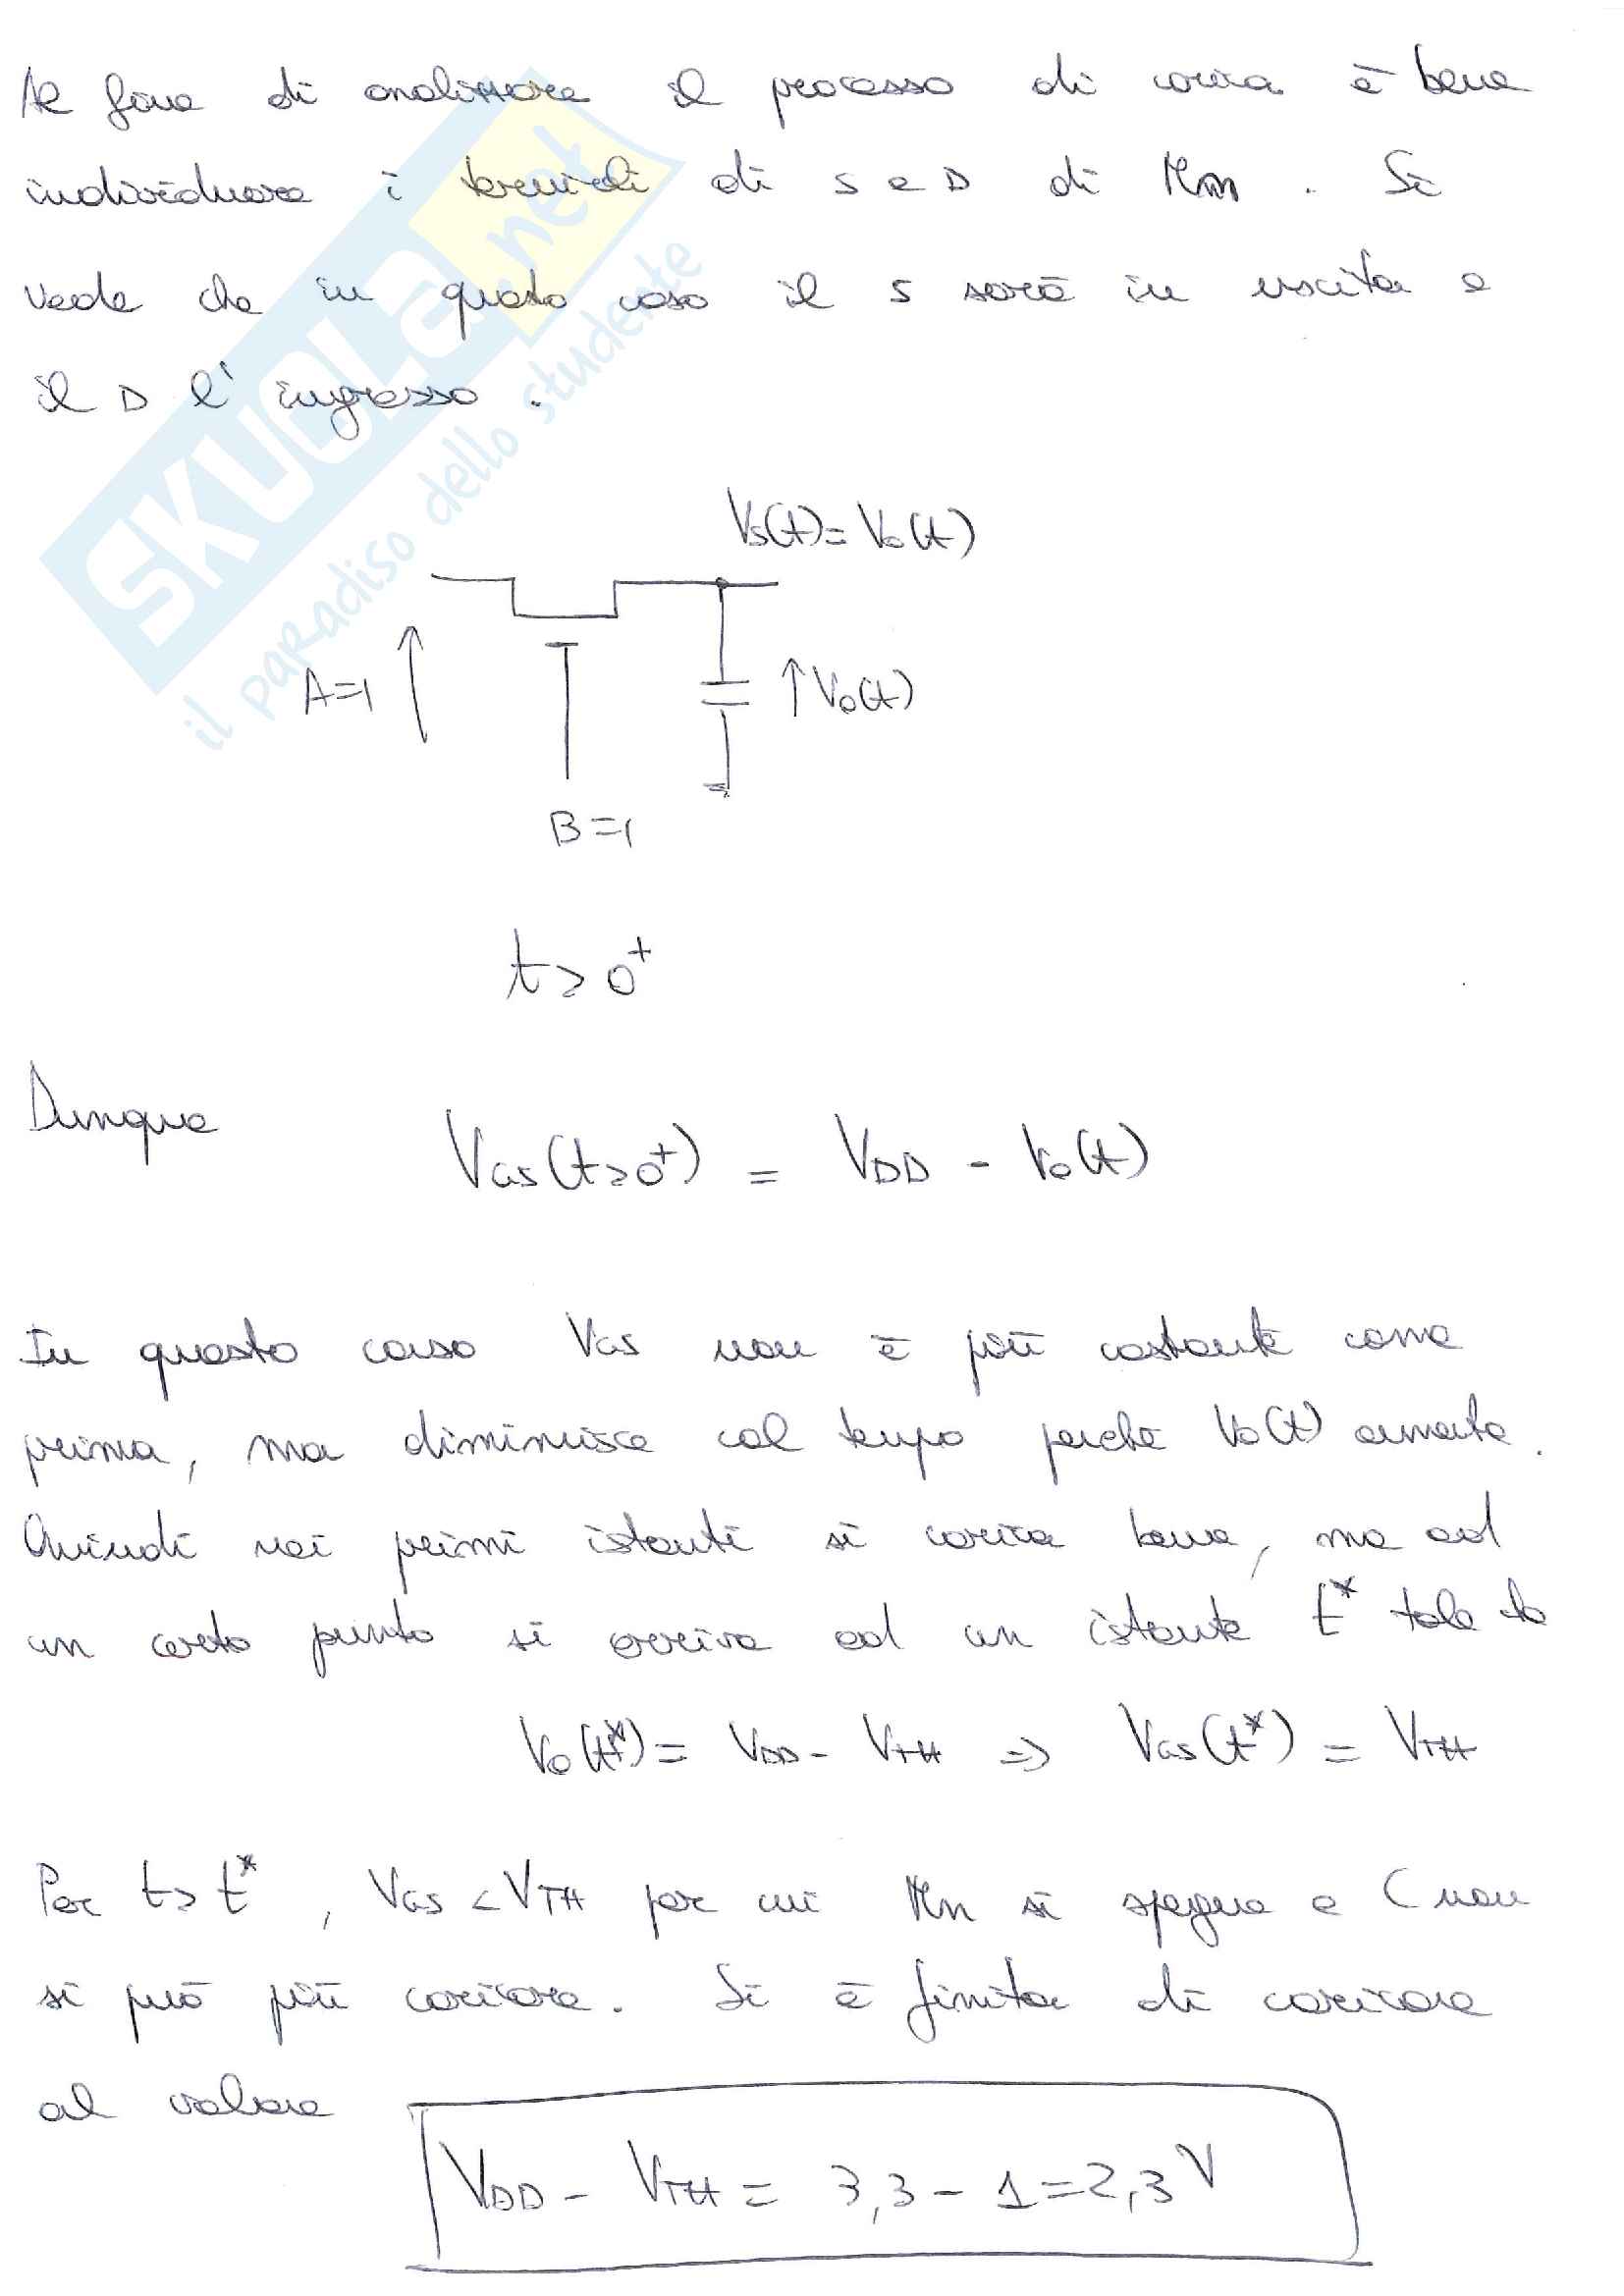 Al fine di analizzare il processo di carica è bene
individuare i terminali di S e D di Mn. Si
vede che in questo caso il S sarà in uscita e
il D l'ingresso.
SKUOLA.net
il paradiso dello studente
Vs(t)=Vo(t)
A=1
↑Vo(t)
B=1
t>0⁺
Dunque VGS(t>0⁺) = VDD - Vo(t)
In questo caso VGS non è più costante come
prima, ma diminuisce col tempo perché Vo(t) aumenta.
Quindi nei primi istanti si carica bene, ma ad
un certo punto si arriva ad un istante t* tale che
Vo(t*) = VDD - VTH ⇒ VGS(t*) = VTH
Per t>t*, VGS<VTH per cui Mn si spegne e C non
si può più caricare. Si è finito di caricare
al valore
VDD - VTH = 3,3 - 1 = 2,3 V